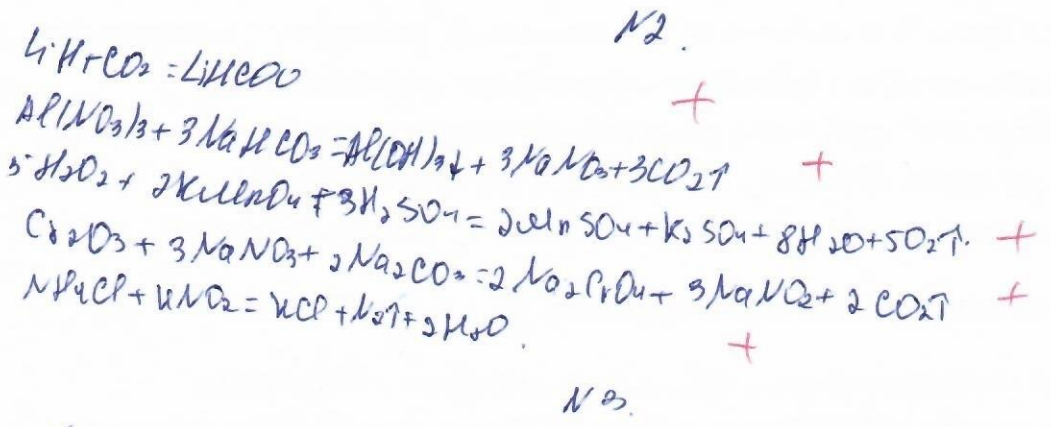 N2.
LiH+CO2=LiHCOO
+
Al(NO3)3+3NaHCO3=Al(OH)3↓+3NaNO3+3CO2↑ +
5H2O2+2KMnO4+3H2SO4=2MnSO4+K2SO4+8H2O+5O2↑. +
Cr2O3+3NaNO3+2Na2CO3=2Na2CrO4+3NaNO2+2CO2↑ +
NH4Cl+KNO2=KCl+N2↑+2H2O.
+
N3.